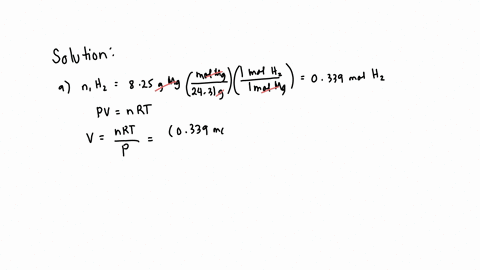 Solution:
a) n, H₂ = 8.25 g Mg (mol Mg / 24.31 g) (1 mol H₂ / 1 mol Mg) = 0.339 mol H₂
PV = nRT
V = nRT / P = (0.339 mo